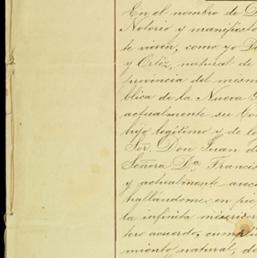 En el nombre de D
Notorio y manifiesto
te vieren, como yo D
y Ortíz, natural de
provincia del mesm
blica de la Nueva G
actualmente su Co
hijo legítimo y de lo
Sor. Don Juan d
Señora Da. Francis
y actualmente
hallandome en pie
la infinita misericor
tero acuerdo, cumpli
miento natural, d